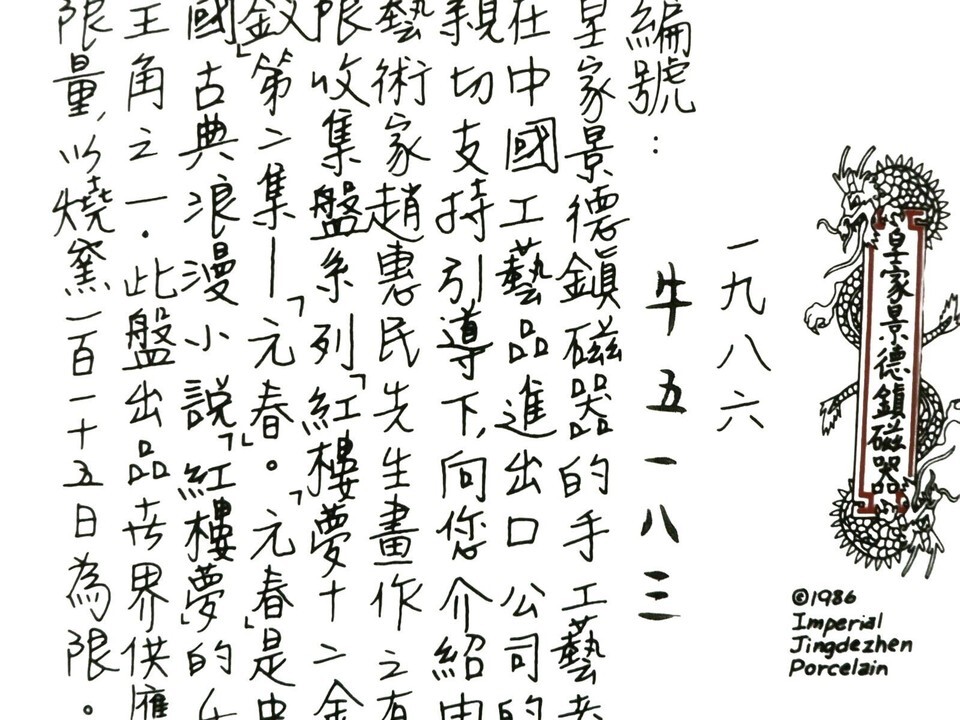 皇家景德鎮磁器
©1986
Imperial
Jingdezhen
Porcelain
一九八六
牛五一八三
編號:
皇家景德鎮磁器的手工藝者
在中國工藝品進出口公司的
親切支持引導下,向您介紹由
藝術家趙惠民先生畫作之有
限收集盤系列「紅樓夢十二金
釵」第二集—「元春」。「元春」是中
國古典浪漫小說「紅樓夢」的女
主角之一.此盤出品世界供應
限量,以燒窯一百一十五日為限。